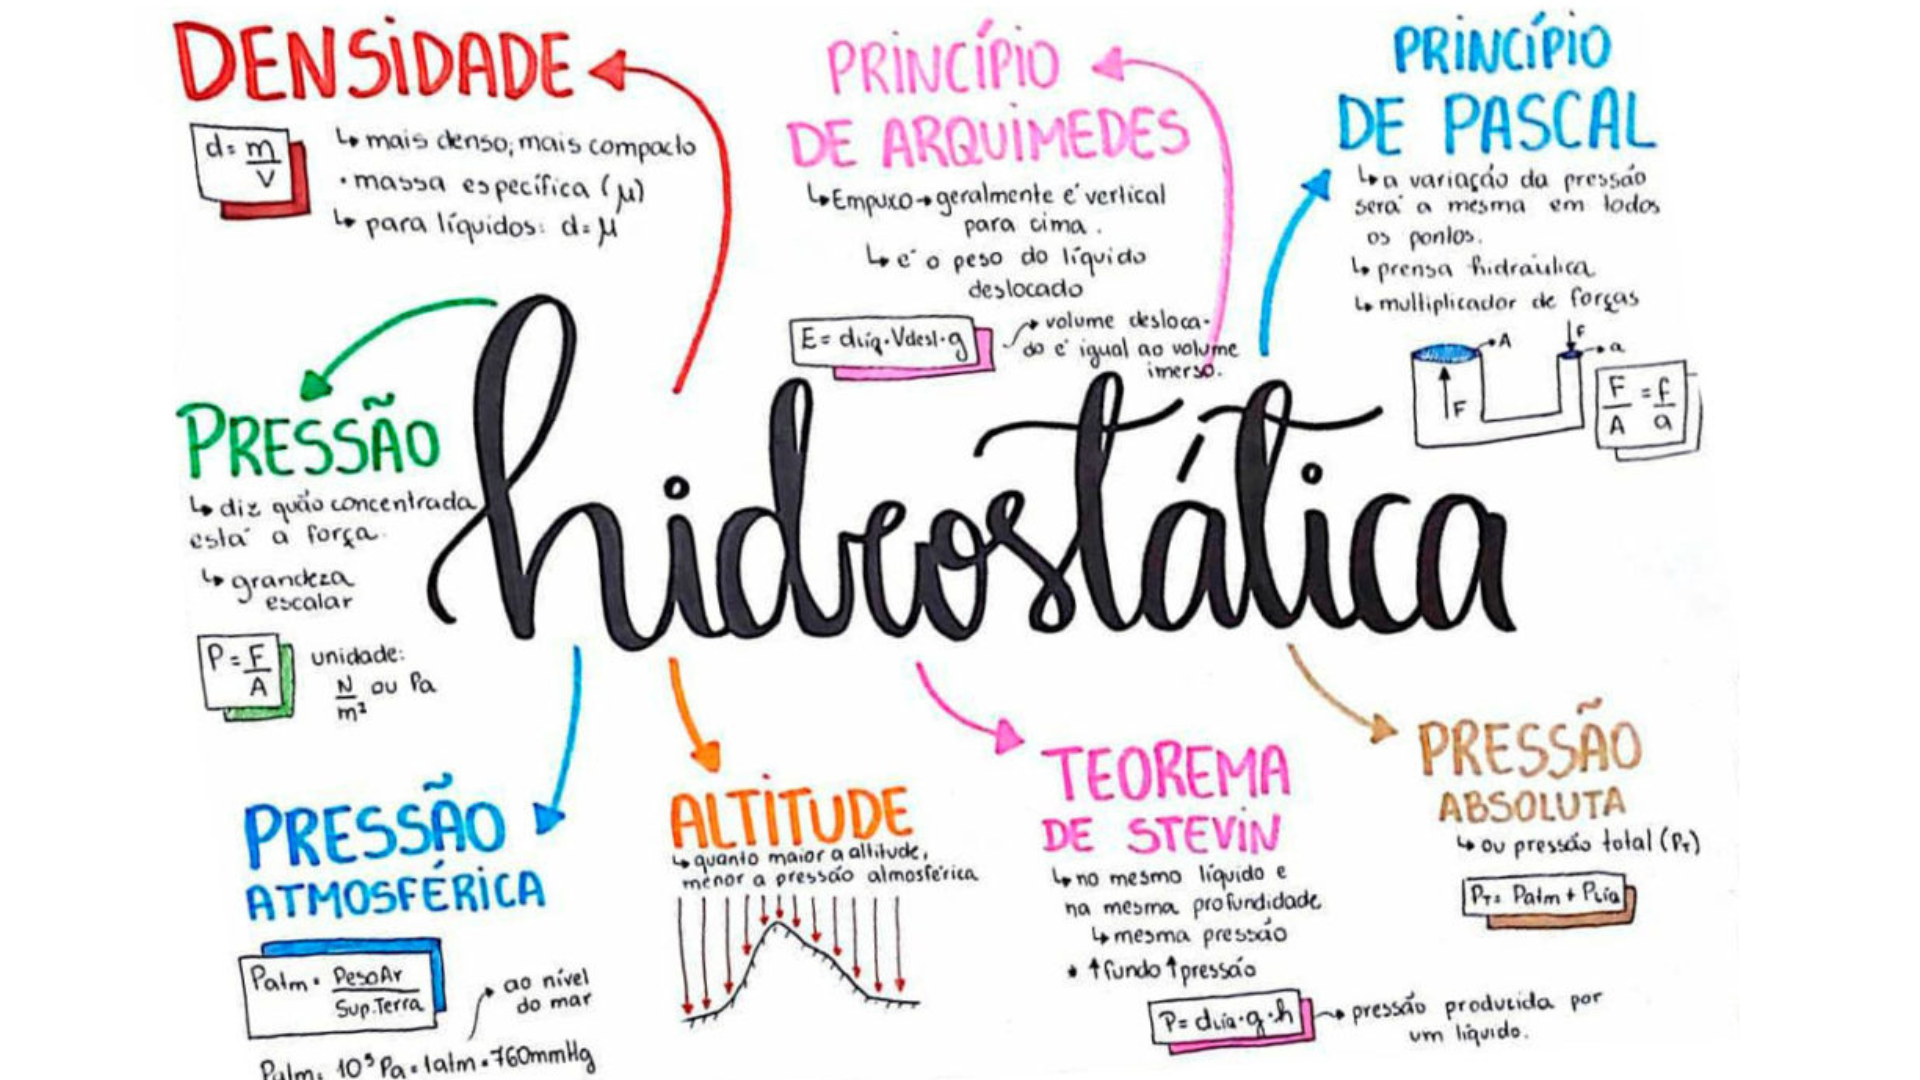 DENSIDADE
d = m
V
↳ mais denso, mais compacto
• massa específica (μ)
↳ para líquidos: d = μ
PRINCÍPIO
DE ARQUIMEDES
↳ Empuxo → geralmente é vertical
para cima.
↳ é o peso do líquido
deslocado
E = dLíq. Vdesl. g
→ volume desloca-
do é igual ao volume
imerso.
PRINCÍPIO
DE PASCAL
↳ a variação da pressão
será a mesma em todos
os pontos.
↳ prensa hidráulica
↳ multiplicador de forças
A
F
F
a
F = f
A a
PRESSÃO
↳ diz quão concentrada
está a força.
↳ grandeza
escalar
P = F
A
unidade:
N ou Pa
m²
hidrostática
PRESSÃO
ATMOSFÉRICA
Patm = PesoAr
Sup.Terra
→ ao nível
do mar
Patm = 10⁵ Pa = 1atm = 760mmHg
ALTITUDE
↳ quanto maior a altitude,
menor a pressão atmosférica
TEOREMA
DE STEVIN
↳ no mesmo líquido e
na mesma profundidade
↳ mesma pressão
• ↑fundo ↑pressão
P = dLíq. g. h
→ pressão produzida por
um líquido.
PRESSÃO
ABSOLUTA
↳ ou pressão total (PT)
PT = Patm + PLíq